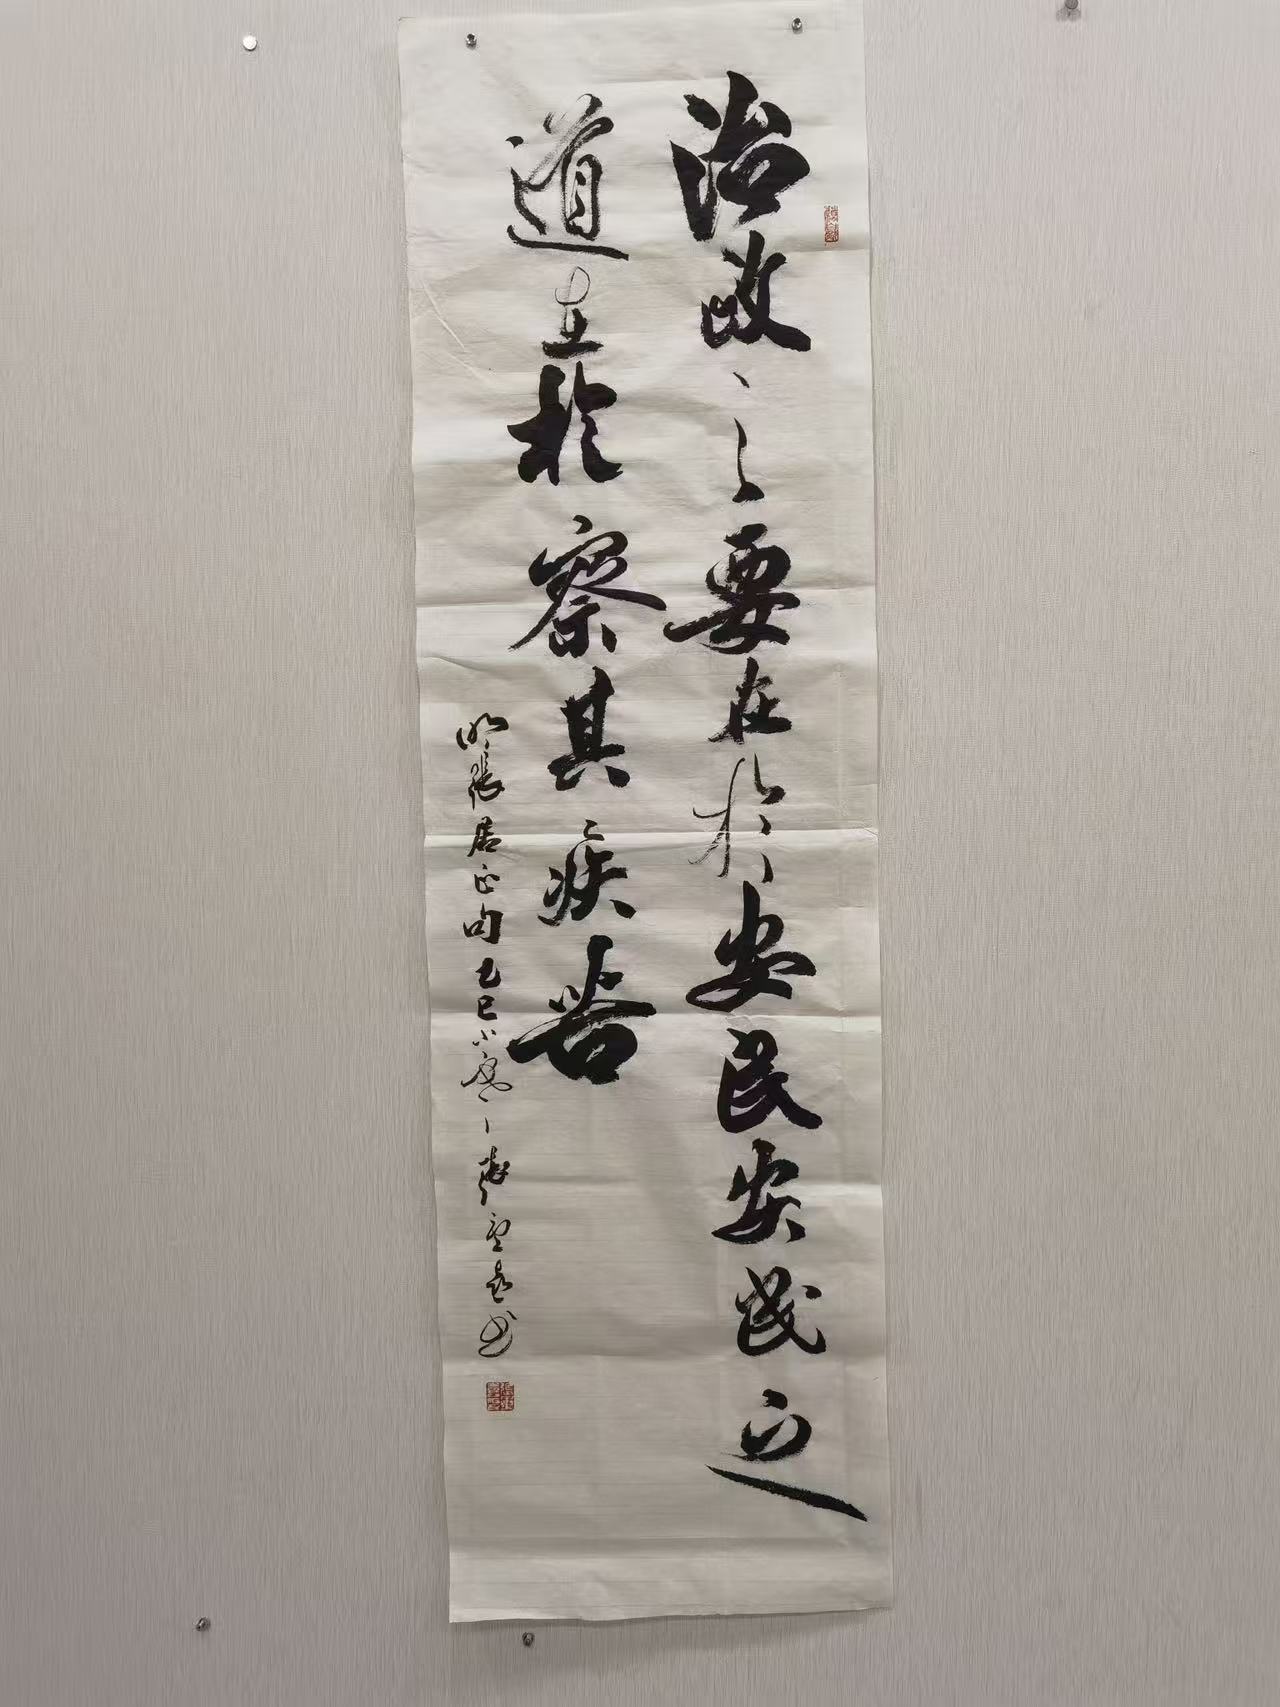 治政之要在於安民安民之
道在於察其疾苦
明張居正句乙巳小寒